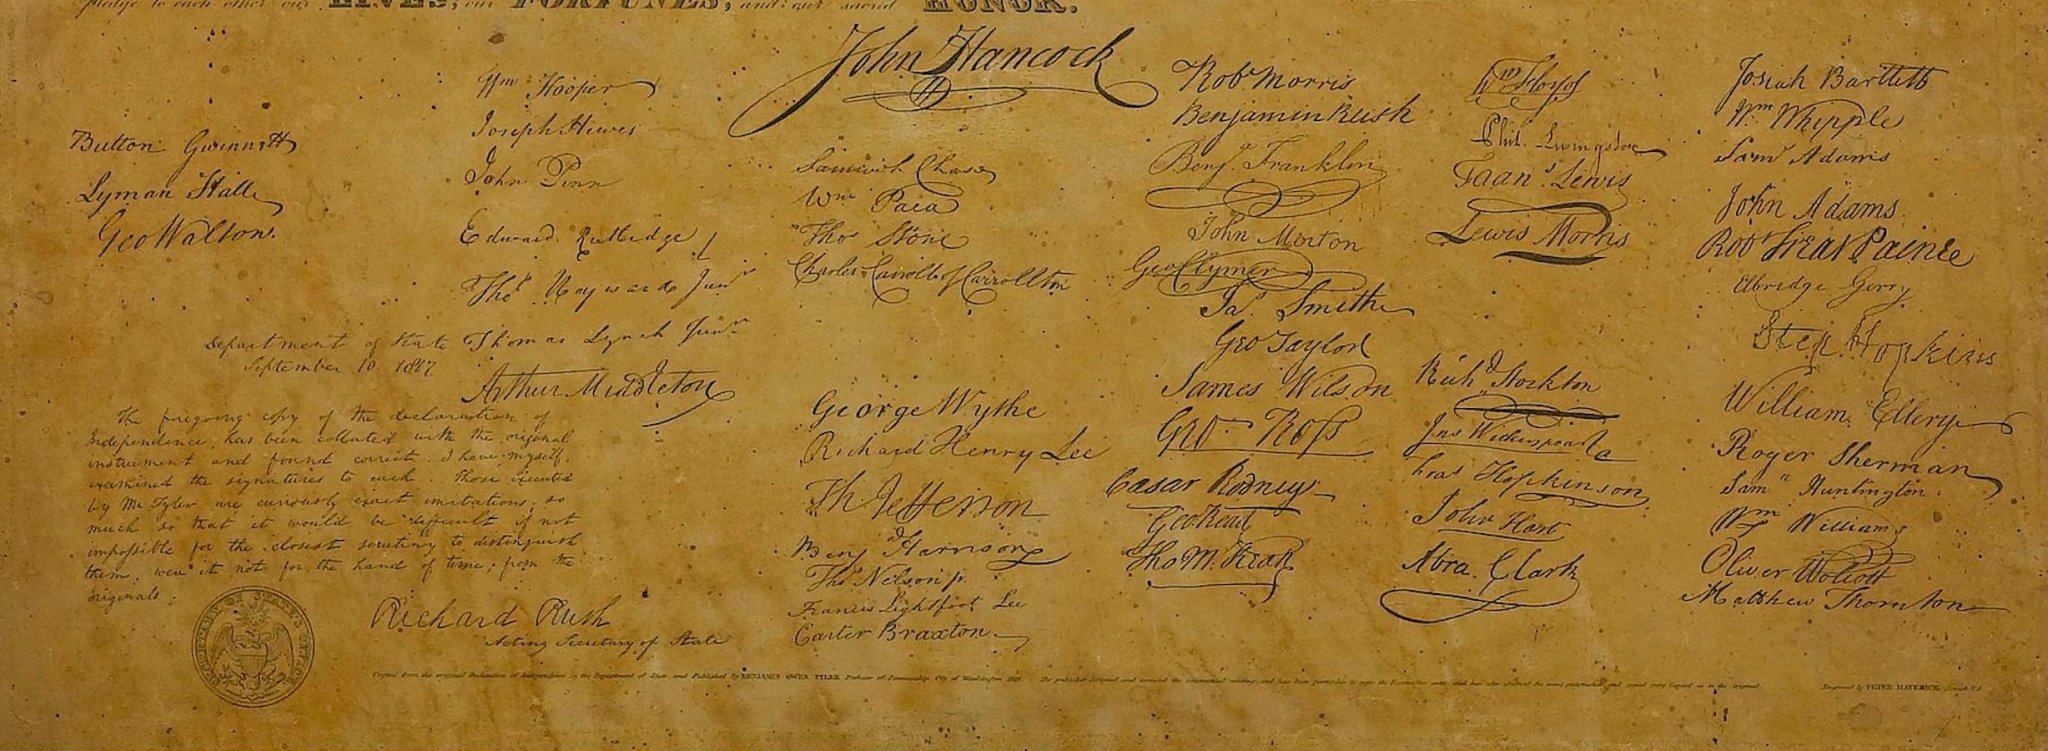 pledge to each other our LIVES, our FORTUNES, and our sacred HONOR.
John Hancock
Button Gwinnett
Lyman Hall
Geo Walton.
Wm Hooper
Joseph Hewes
John Penn
Edward Rutledge /
Thos Heyward Junr
Thomas Lynch Junr
Arthur Middleton
Samuel Chase
Wm Paca
Thos Stone
Charles Carroll of Carrollton
George Wythe
Richard Henry Lee
Th Jefferson
Benj Harrison
Thos Nelson jr
Francis Lightfoot Lee
Carter Braxton
Robt Morris
Benjamin Rush
Benj Franklin
John Morton
Geo Clymer
Jas Smith
Geo Taylor
James Wilson
Geo Ross
Caesar Rodney
Geo Read
Tho M:Kean
Wm Floyd
Phil. Livingston
Frans Lewis
Lewis Morris
Richd Stockton
Jno Witherspoon
Fras Hopkinson
John Hart
Abra Clark
Josiah Bartlett
Wm Whipple
Saml Adams
John Adams
Robt Treat Paine
Elbridge Gerry
Step Hopkins
William Ellery
Roger Sherman
Saml Huntington
Wm Williams
Oliver Wolcott
Matthew Thornton
Department of State
September 10. 1817.
The foregoing copy of the declaration of
Independence, has been collated with the original
instrument and found correct. I have myself,
examined the signatures to each. Those executed
by Mr Tyler are curiously exact imitations; so
much so that it would be difficult if not
impossible for the closest scrutiny to distinguish
them, were it not for the hand of time; from the
originals.
Richard Rush
Acting Secretary of State
SECRETARY OF STATE'S OFFICE
Copied from the original Declaration of Independence in the Department of State and Published by BENJAMIN OWEN TYLER Professor of Penmanship City of Washington 1818
Engraved by PETER MAVERICK Newark N.J.